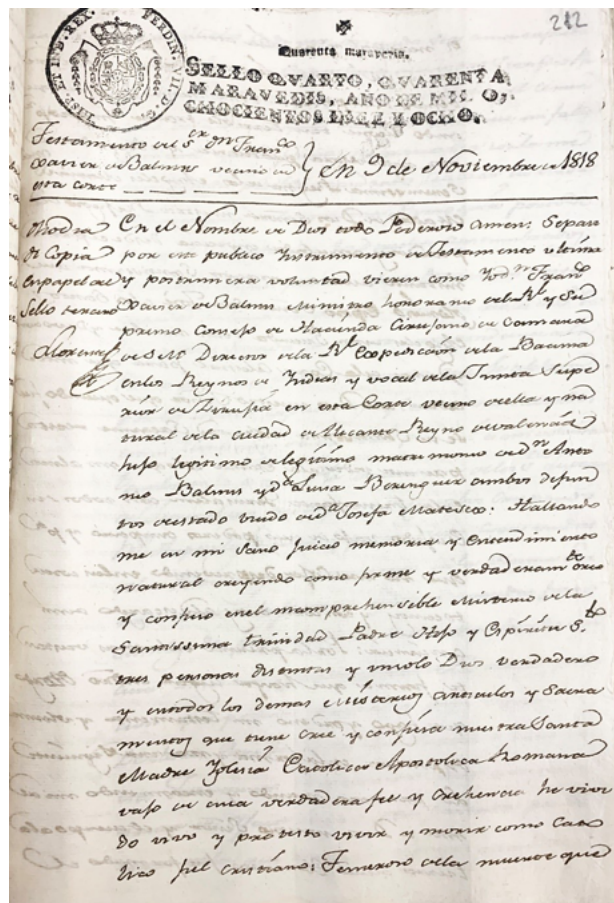 212
HISP. ET IND. REX. FERDIN. VII. D. G.
Quarenta maravedis.
SELLO QVARTO, QVARENTA
MARAVEDIS, AÑO DE MIL O,
CHOCIENTOS DIEZ Y OCHO.
Testamento del S.or Dn Franco
Xavier de Balmis vecino de
esta corte
En 9 de Noviembre de 1818
En el Nombre de Dios todo Poderoso Amen: Sepan
di Copia por este publico Instrumento de Testamento ultima
en papel del y postrimera voluntad vieren como Yo Dn Franco
Sello tercero Xavier de Balmis Ministro honorario del Rl y Su
premo Consejo de Hacienda Cirujano de Camara
Llorente
de S.M. Director de la Rl Expedicion de la Bacuna
en los Reynos de Yndias y vocal de la Junta Supe
rior de Zirujía en esta Corte vecino de ella y na
tural de la ciudad de Alicante Reyno de Valencia
hijo legitimo de legitimo matrimonio de Dn Anto
nio Balmis y Da Luisa Berenguer ambos difun
tos de estado viudo de Da Josefa Mateseo: Hallando
me en mi sano juicio memoria y entendimiento
natural creyendo como firme y verdaderamte creo
y confieso en el incomprehensible Misterio de la
Santissima trinidad Padre Hijo y Espíritu Sto
tres personas distintas y un solo Dios verdadero
y en todos los demas Misterios articulos y Sacra
mentos que tiene cree y confiesa nuestra Santa
Madre Yglesia Catolica Apostolica Romana
vajo de cuia verdadera fee y crehencia he vivi
do vivo y protesto vivir y morir como Cato
lico fiel cristiano: Temeroso de la muerte que